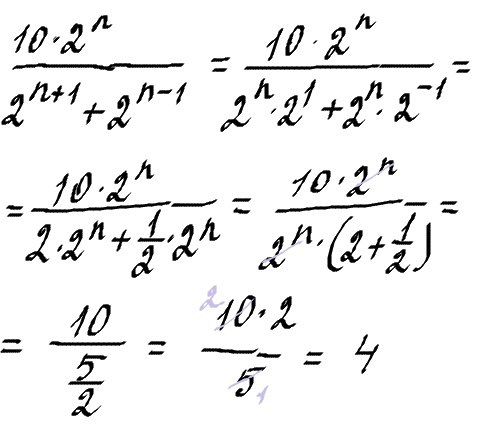 10·2ⁿ / (2ⁿ⁺¹ + 2ⁿ⁻¹) = 10·2ⁿ / (2ⁿ·2¹ + 2ⁿ·2⁻¹) =
= 10·2ⁿ / (2·2ⁿ + 1/2·2ⁿ) = 10·2ⁿ / (2ⁿ·(2 + 1/2)) =
= 10 / (5/2) = 10·2 / 5 = 4
2
1